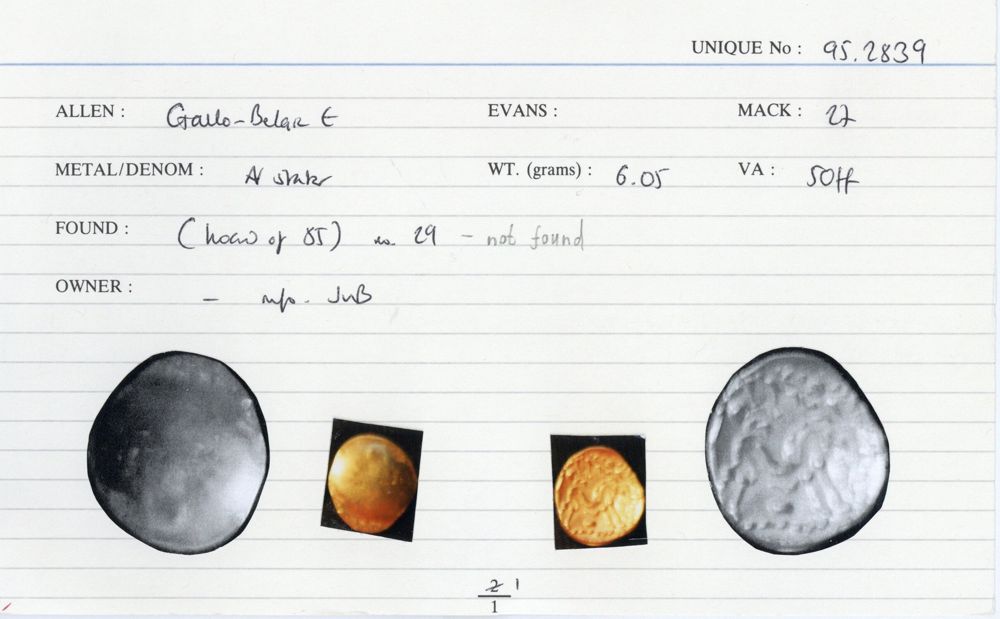 UNIQUE No : 95.2839
ALLEN : Gallo-Belgic E EVANS : MACK : 27
METAL/DENOM : AV stater WT. (grams) : 6.05 VA : 50ff
FOUND : (hoard of 85) no. 29 - not found
OWNER : - info. JvB
2 1
1